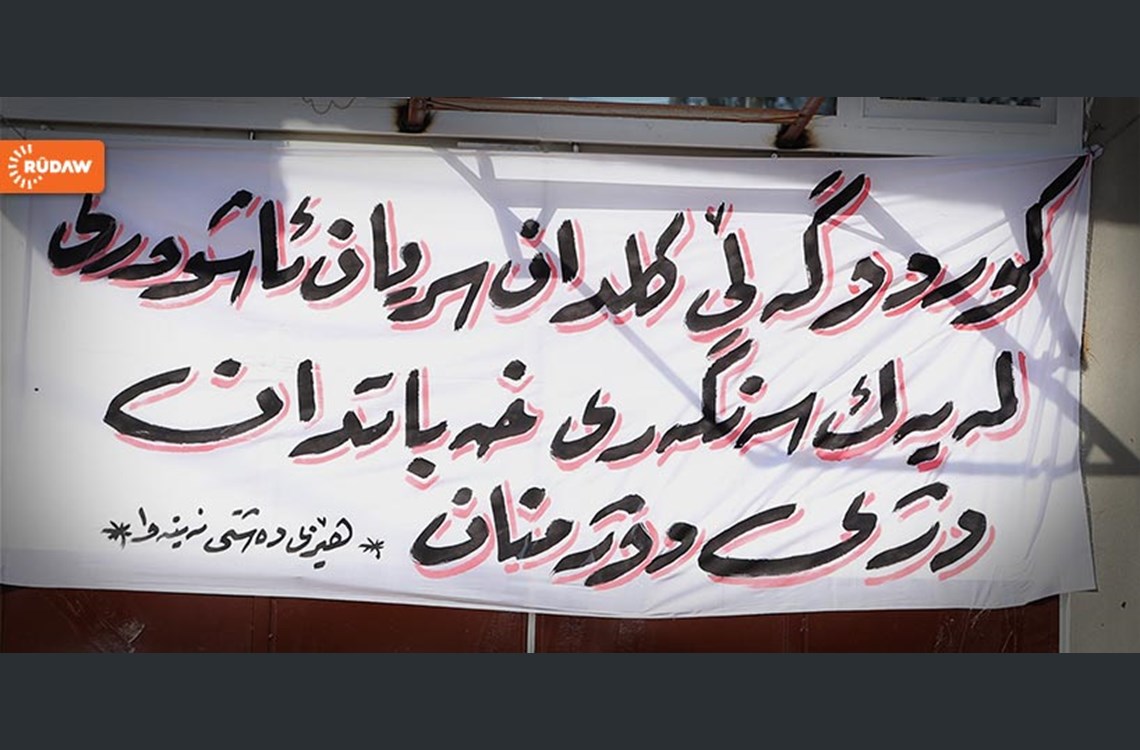 RÛDAW
كوردو گەلێ كلدان سريان ئاشوورى
لەيەك سەنگەرى خەباتدان
دژى دوژمنان
* هێزى دەشتى نەينەوا *